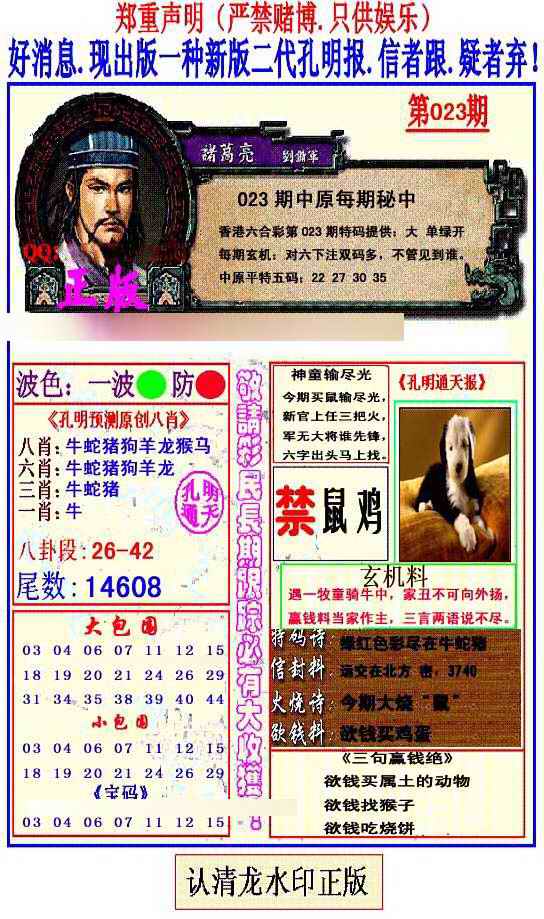 郑重声明（严禁赌博.只供娱乐）
好消息.现出版一种新版二代孔明报.信者跟.疑者弃！
第023期
諸葛亮
023 期中原每期秘中
香港六合彩第 023 期特码提供：大 单绿开
每期玄机：对六下注双码多，不管见到谁。
中原平特五码：22 27 30 35
QQ:
正版
波色：一波 防
《孔明预测原创八肖》
八肖：牛蛇猪狗羊龙猴马
六肖：牛蛇猪狗羊龙
三肖：牛蛇猪
一肖：牛
孔明
通天
八卦段：26-42
尾数：14608
大包围
03 04 06 07 11 12 15
18 19 20 21 24 26 29
31 34 35 38 39 40 44
小包围
03 04 06 07 11 12 15
18 19 20 21 24 26 29
03 04 06 07 11 12 15
敬請彩民長期跟踪必有大收獲！
神童输尽光
今期买鼠输尽光，
新官上任三把火，
军无大将谁先锋，
六字出头马上找。
《孔明通天报》
禁鼠鸡
玄机料
遇一牧童骑牛中，家丑不可向外扬，
赢钱料当家作主，三言两语说不尽。
特码诗：绿红色彩尽在牛蛇猪
信封料：远交在北方 密，3740
火烧诗：今期大烧“鼠”
欲钱料：欲钱买鸡蛋
《三句赢钱绝》
欲钱买属土的动物
欲钱找猴子
欲钱吃烧饼
认清龙水印正版